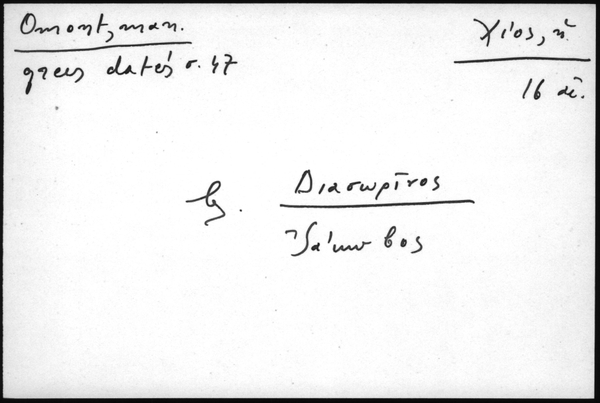 Omont, man.
grecs datés σ. 47
Χίος, ἡ
16 αἰ.
βγ.
Διασωρῖνος
Ἰάκωβος